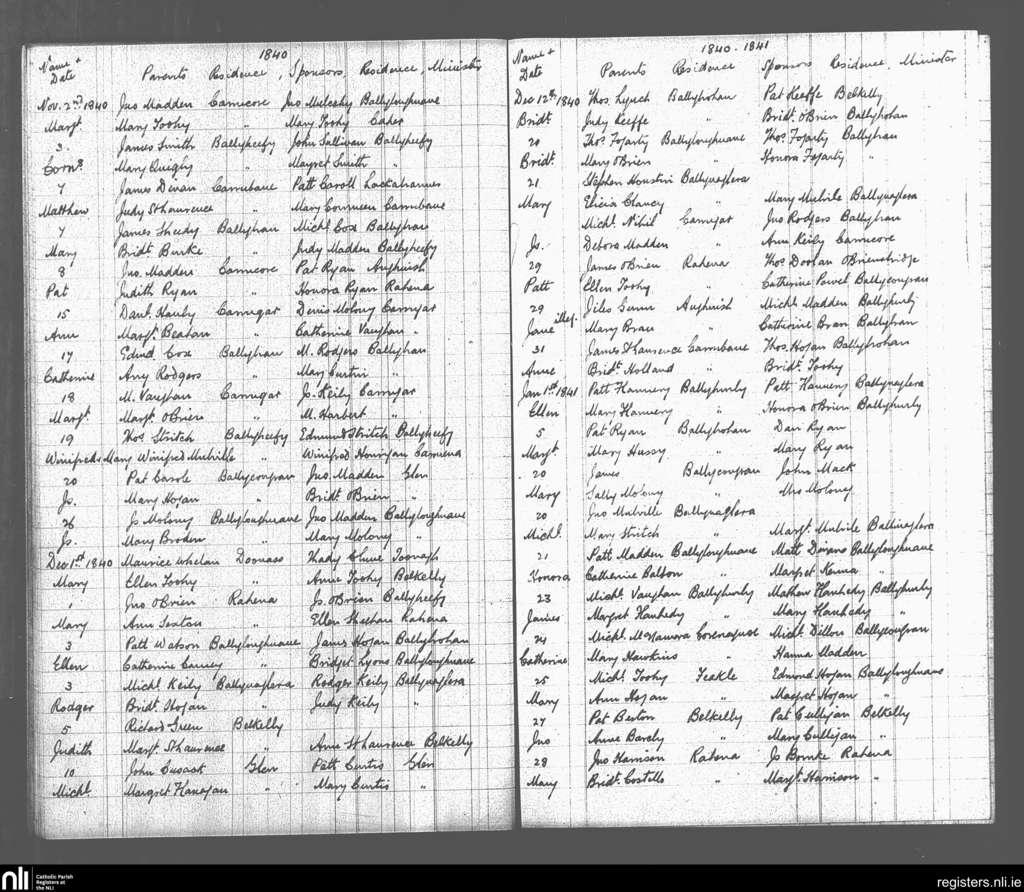 1840
Name & Date Parents Residence, Sponsors, Residence, Minister
Nov. 2nd 1840 Jno Madden Carnicore Jno Mulcahy Ballyloughnane
Margt. Mary Toohy " Mary Toohy Caher
3. James Smith Ballyheefy John Sullivan Ballyheefy
Corns. Mary Quigly " Margret Smith "
7 James Divan Carnibane Patt Caroll
Matthew Judy StLaurence " Mary Carnibane
7 James Sheedy Ballybran Michl Cox Ballybran
Mary Bridt Burke " Judy Madden Ballyheefy
8 Jno. Madden Carnicore Pat Ryan Aughnish
Pat Judith Ryan " Honora Ryan Rahena
15 Danl. Hanly Carrugar Denis Molony Carrugar
Ann Margt. Beahan " Catherine Vaughan "
17 Edmd Cox Ballybran M. Rodgers Ballybran
Catherine Amy Rodgers " Mary Curtin "
18 M. Vaughan Carrugar J. Keily Carrugar
Margt. Margt. OBrien " M. Harbert "
19 Thos Stritch Ballyheefy Edmund Stritch Ballyheefy
Winifred & Mary Winifred Mulville " Winifred Hourigan
20 Pat Carole Ballycougran Jno. Madden Glen
Js. Mary Hogan " Bridt OBrien "
26 Js Molony Ballyloughnane Jno Madden Ballyloughnane
Js. Mary Broden " Mary Molony "
Dec 1st 1840 Maurice Whelan Doonass Thady Clune Toonagh
Mary Ellen Toohy " Anne Toohy Belkelly
" Jno OBrien Rahena Js. OBrien Ballyheefy
Mary Ann Sexton " Ellen Sheehan Rahena
3 Patt Watson Ballyloughnane James Hogan Ballybrohan
Ellen Catherine " Bridget Lyons Ballyloughnane
3 Michl. Keily Ballynaglera Rodger Keily Ballynaglera
Rodger Bridt. Hogan " Judy Keily "
5 Richard Green Belkelly
Judith Margt. StLaurence " Ann StLaurence Belkelly
10 John Cusack Glen Patt Curtis Glen
Michl. Margret Hanagan " Mary Curtis "
1840 . 1841
Name & Date Parents Residence Sponsors Residence, Minister
Dec 12th 1840 Thos. Lynch Ballybrohan Pat Keeffe Belkelly
Bridt Judy Keeffe " Bridt. OBrien Ballybrohan
20 Thos. Fogarty Ballyloughnane Thos Fogarty Ballybran
Bridt. Mary OBrien " Honora Fogarty "
21 Stephen Ballynaglera
Mary Elicia Clancy " Mary Mulvile Ballynaglera
Michl. Nihil Carrugar Jno Rodgers Ballybran
Js. Debora Madden " Ann Keily Carnicore
29 James OBrien Rahena Thos Doolan OBriensbridge
Patt Ellen Toohy " Catherine Powel Ballycougran
29 Jiles Aughnish Michl. Madden Ballyhurly
Jane illeg. Mary Bran " Catherine Bran Ballybran
31 James StLaurence Carnibane Thos. Hogan Ballybrohan
Anne Bridt. Holland " Bridt. Toohy
Jan 1st 1841 Patt Flannery Ballyhurly Patt Flannery Ballynaglera
Ellen Mary Flannery " Honora OBrien Ballyhurly
5 Pat Ryan Ballybrohan Dan Ryan
Margt. Mary Hussy " Mary Ryan
20 James Ballycougran John Mack
Mary Sally Molony " Mrs Molony
20 Jno Mulville Ballynaglera
Michl. Mary Stritch " Margt. Mulvile Ballinaglera
21 Patt Madden Ballyloughnane Matt Ballyloughnane
Honora Catherine " Margret Kenna "
23 Michl. Vaughan Ballyhurly Mathew Ballyhurly
James Margret " Mary "
24 Michl. McNamara Michl. Dillon Ballycougran
Catherine Mary Hawkins " Hanna Madden
25 Michl. Toohy Feakle Edmond Hogan Ballyloughnane
Mary Ann Hogan " Margret Hogan "
27 Pat Belkelly Pat Culligan Belkelly
Jno Anne " Mary Culligan "
28 Jno Harrison Rahena Js Rourke Rahena
Mary Bridt. Costello " Margt. Harrison "
nli Catholic Parish Registers at the NLI
registers.nli.ie